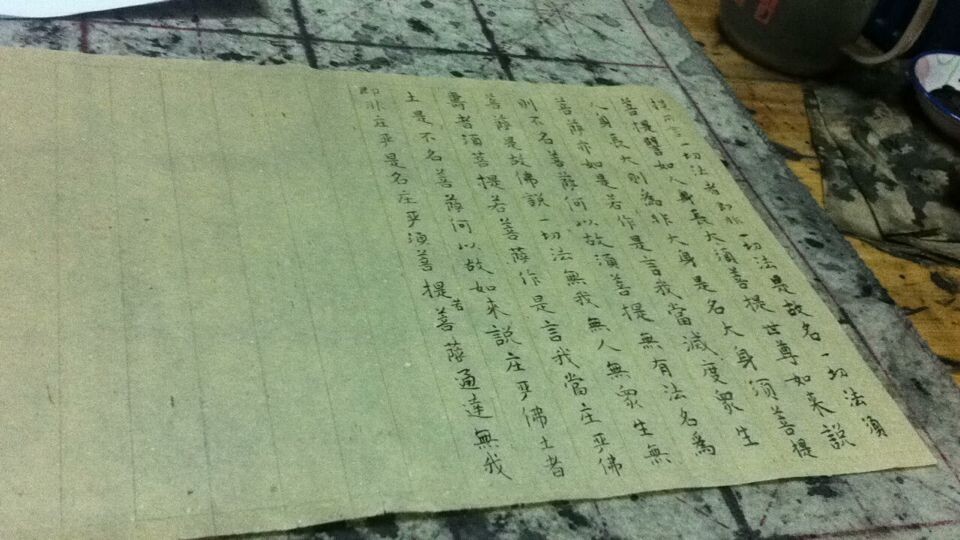 提所言一切法者即非一切法是故名一切法須
菩提譬如人身長大須菩提世尊如來說
人身長大則為非大身是名大身須菩提
菩薩亦如是若作是言我當滅度眾生
則不名菩薩何以故須菩提無有法名為
菩薩是故佛說一切法無我無人無眾生無
壽者須菩提若菩薩作是言我當庄严佛
土是不名菩薩何以故如來說庄严佛土者
即非庄严是名庄严須菩提若菩薩通達無我